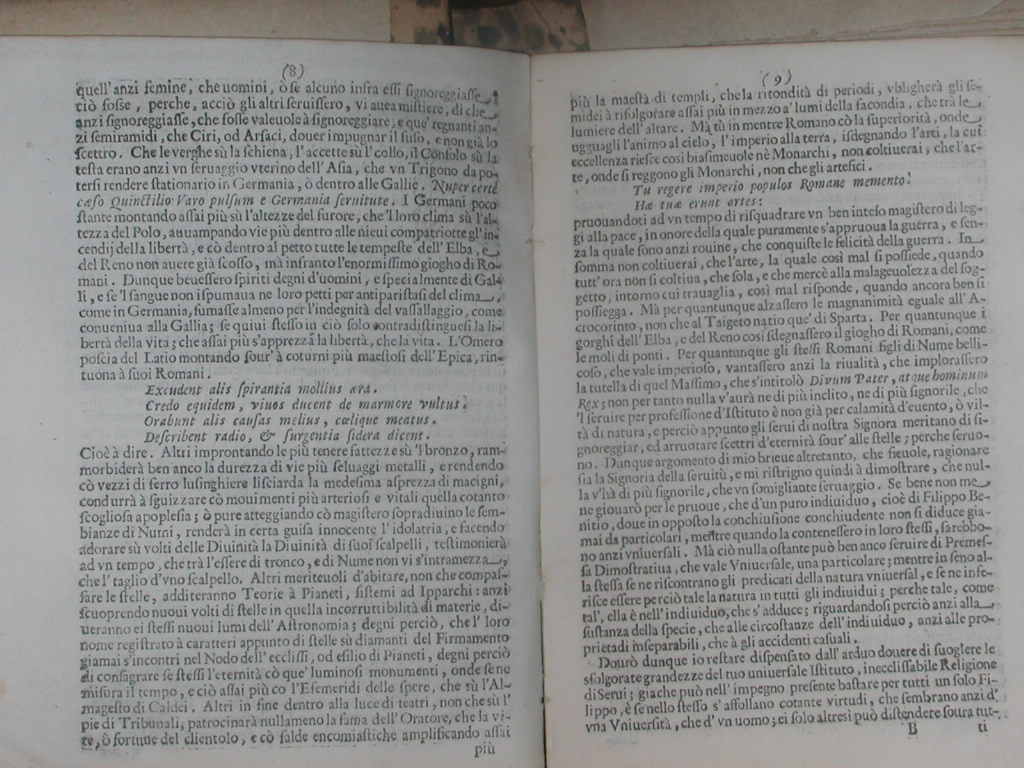 (8)
quell'anzi femine, che uomini, ò se alcuno infra essi signoreggiasse
ciò fosse, perche, acciò gli altri seruissero, vi auea mistiere, di che
anzi signoreggiasse, che fosse valeuole à signoreggiare, e que' regnanti an-
zi semiramidi, che Ciri, od Arsaci, douer impugnar il fuso, e non già lo
scettro. Che le verghe sù la schiena, l'accette sù l' collo, il Consolo sù la
testa erano anzi vn seruaggio vterino dell'Asia, che vn Trigono da po-
tersi rendere stationario in Germania, ò dentro alle Gallie. Nuper certè
cæso Quinctilio Varo pulsum e Germania seruitute. I Germani poco
stante montando assai più sù l'altezze del furore, che'l loro clima sù l'al-
tezza del Polo, auuampando vie più dentro alle nieui compatriotte gl'in-
cendij della libertà, e cò dentro al petto tutte le tempeste dell'Elba, e
del Reno non auere già scosso, mà infranto l'enormissimo giogho di Ro-
mani. Dunque beuessero spiriti degni d'uomini, e specialmente di Gal-
li, e se'l sangue non ispumaua ne loro petti per antiparistasi del clima,
come in Germania, fumasse almeno per l'indegnità del vassallaggio, come
conueniua alla Gallia; se quiui stesso in ciò solo contradistinguesi la li-
bertà della vita; che assai più s'apprezza la libertà, che la vita. L'Omero
poscia del Latio montando sour'à coturni più maestosi dell'Epica, rin-
tuona à suoi Romani.
Excudent alis spirantia mollius æra.
Credo equidem, viuos ducent de marmore vultus:
Orabunt alis causas melius, cœlique meatus.
Describent radio, & surgentia sidera dicent.
Cioè à dire. Altri improntando le più tenere fattezze sù'l bronzo, ram-
morbiderà ben anco la durezza di vie più seluaggi metalli, e rendendo
cò vezzi di ferro lusinghiere lisciarda la medesima asprezza di macigni,
condurrà à sguizzare cò mouimenti più arteriosi e vitali quella cotanto
scogliosa apoplesia; ò pure atteggiando cò magistero sopradiuino le sem-
bianze di Numi, renderà in certa guisa innocente l'idolatria, e facendo
adorare sù volti delle Diuinità la Diuinità di suoi scalpelli, testimonierà
ad vn tempo, che trà l'essere di tronco, e di Nume non vi s'intramezza,
che l'taglio d'vno scalpello. Altri meriteuoli d'abitare, non che compas-
sare le stelle, additeranno Teorie à Pianeti, sistemi ad Ipparchi: anzi
scuoprendo nuoui volti di stelle in quella incorruttibilità di materie, di-
ueranno ei stessi nuoui lumi dell'Astronomia; degni perciò, che l' loro
nome registrato à caratteri appunto di stelle sù diamanti del Firmamento
giamai s'incontri nel Nodo dell'ecclissi, od esilio di Pianeti, degni perciò
di consagrare se stessi l'eternità cò que' luminosi monumenti, onde se ne
misura il tempo, e ciò assai più co l'Esemeridi delle spere, che sù l'Al-
magesto di Caldei. Altri in fine dentro alla luce di teatri, non che sù l'
pie di Tribunali, patrocinarà nullameno la fama dell'Oratore, che la vi-
te, ò fortune del clientolo, e cò salde encomiastiche amplificando assai
più
(9)
più la maestà di templi, che la ritondità di periodi, vbligherà gli se-
midei à rifolgorare assai più in mezzo a'lumi della facondia, che trà le
lumiere dell'altare. Mà tù in mentre Romano cò la superiorità, onde
ugguagli l'animo al cielo, l'imperio alla terra, isdegnando l'arti, la cui
eccellenza riesce così biasimeuole nè Monarchi, non coltiuerai, che l'ar-
te, onde si reggono gli Monarchi, non che gli artefici.
Tu regere imperio populos Romane memento:
Hæ tuæ erunt artes:
pruouandoti ad vn tempo di risquadrare vn ben inteso magistero di leg-
gi alla pace, in onore della quale puramente s'appruoua la guerra, e sen-
za la quale sono anzi rouine, che conquiste le felicità della guerra. In
somma non coltiuerai, che l'arte, la quale così mal si possiede, quando
tutt'ora non si coltiua, che sola, e che mercè alla malageuolezza del sog-
getto, intorno cui trauaglia, così mal risponde, quando ancora ben si
possiegga. Mà per quantunque alzassero le magnanimità eguale all'A-
crocorinto, non che al Taigeto natio que' di Sparta. Per quantunque i
gorghi dell'Elba, e del Reno così sdegnassero il giogho di Romani, come
le moli di ponti. Per quantunque gli stessi Romani figli di Nume belli-
coso, che vale imperioso, vantassero anzi la riualità, che implorassero
la tutella di quel Massimo, che s'intitolò Divum Pater, atque hominum
Rex; non per tanto nulla v'aurà ne di più inclito, ne di più signorile, che
'l seruire per professione d'Istituto è non già per calamità d'euento, ò vil-
tà di natura, e perciò appunto gli serui di nostra Signora meritano di si-
gnoreggiar, ed arruotare scettri d'eternità sour' alle stelle; perche seruo-
no. Dunque argomento di mio brieue altretanto, che fieuole, ragionare
sia la Signoria della seruitù, e mi ristrigno quindi à dimostrare, che nul-
la v'hà di più signorile, che vn somigliante seruaggio. Se bene non me
ne giouarò per le pruoue, che d'un puro indiuiduo, cioè di Filippo Be-
nitio, doue in opposto la conchiusione conchiudente non si diduce gia-
mai da particolari, mentre quando la contenessero in loro stessi, sarebbo-
no anzi vniuersali. Mà ciò nulla ostante può ben anco seruire di Premes-
sa Dimostratiua, che vale Vniuersale, una particolare; mentre in seno al-
la stessa se ne riscontrano gli predicati della natura vniuersal, e se ne infe-
risce essere perciò tale la natura in tutti gli indiuidui; perche tale, come
tal', ella è nell'indiuiduo, che s'adduce; riguardandosi perciò anzi alla
sustanza della specie, che alle circostanze dell'indiuiduo, anzi alle pro-
prietadi inseparabili, che à gli accidenti casuali.
Dourò dunque io restare dispensato dall'arduo douere di suogliere le
sfolgorate grandezze del tuo uniuersale Istituto, ineclissabile Religione
di Serui; giache può nell'impegno presente bastare per tutti un solo Fi-
lippo, è se nello stesso s'affollano cotante virtudi, che sembrano anzi d'
vna Vniuersità, che d'vn uomo; ei solo altresi può distendere soura tut-
B
ti